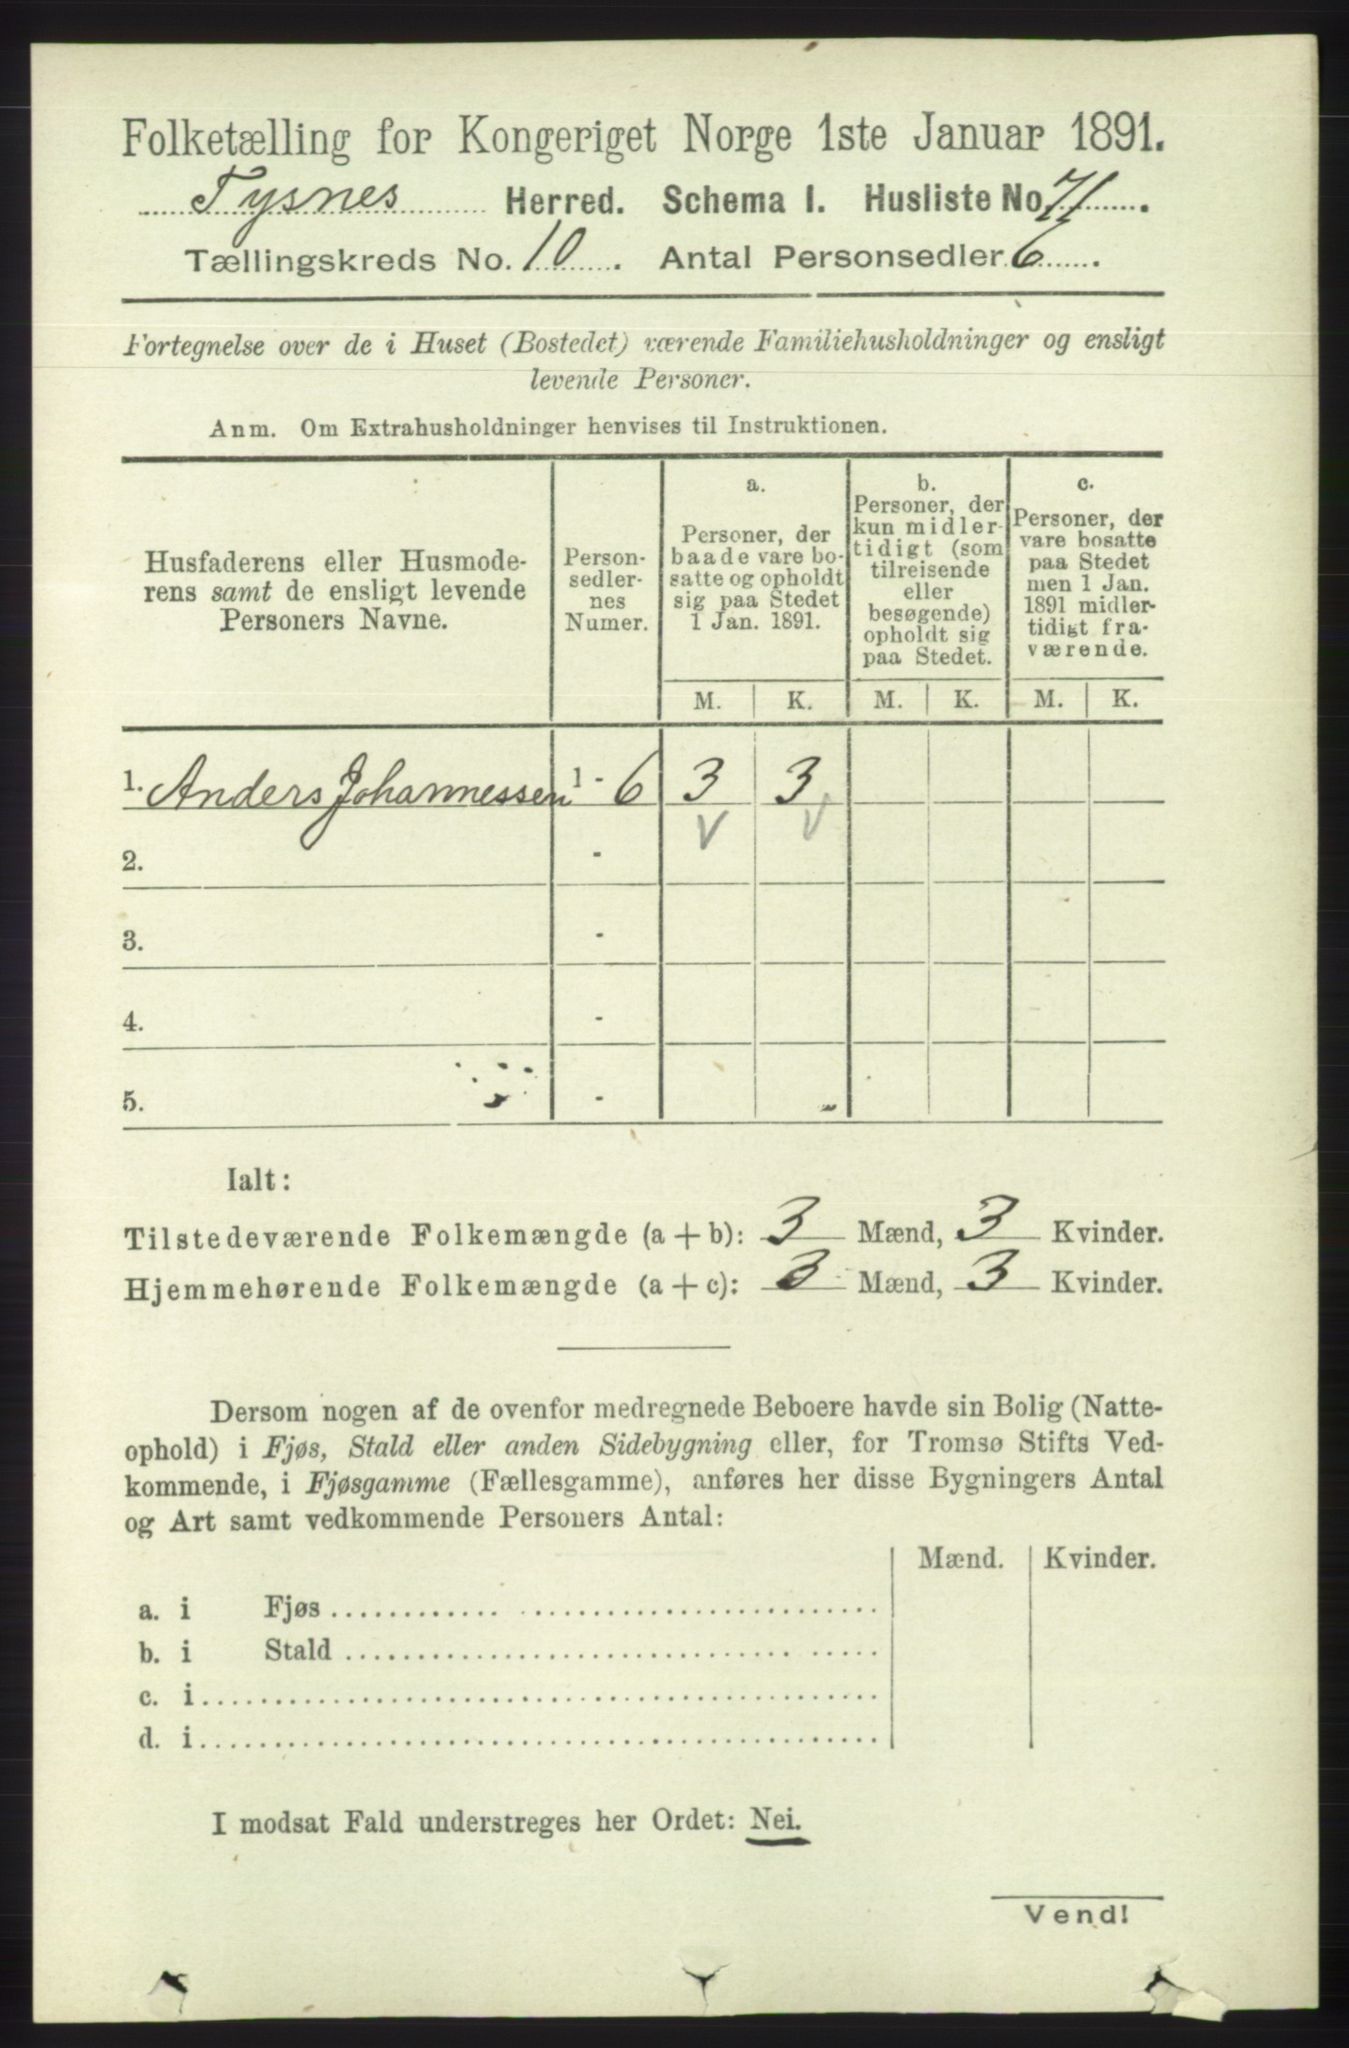 Folketælling for Kongeriget Norge 1ste Januar 1891.
Tysnes Herred. Schema I. Husliste No 71.
Tællingskreds No. 10. Antal Personsedler 6.
Fortegnelse over de i Huset (Bostedet) værende Familiehusholdninger og ensligt
levende Personer.
Anm. Om Extrahusholdninger henvises til Instruktionen.
Husfaderens eller Husmode-
rens samt de ensligt levende
Personers Navne.
Person-
sedler-
nes
Numer.
a.
Personer, der
baade vare bo-
satte og opholdt
sig paa Stedet
1 Jan. 1891.
b.
Personer, der
kun midler-
tidigt (som
tilreisende
eller
besøgende)
opholdt sig
paa Stedet.
c.
Personer, der
vare bosatte
paa Stedet
men 1 Jan.
1891 midler-
tidigt fra-
værende.
M. K. M. K. M. K.
1. Anders Johannessen 1 - 6 3 3
2. -
3. -
4. -
5. -
Ialt:
Tilstedeværende Folkemængde (a + b): 3 Mænd, 3 Kvinder.
Hjemmehørende Folkemængde (a + c): 3 Mænd, 3 Kvinder.
Dersom nogen af de ovenfor medregnede Beboere havde sin Bolig (Natte-
ophold) i Fjøs, Stald eller anden Sidebygning eller, for Tromsø Stifts Ved-
kommende, i Fjøsgamme (Fællesgamme), anføres her disse Bygningers Antal
og Art samt vedkommende Personers Antal:
Mænd. Kvinder.
a. i Fjøs
b. i Stald
c. i
d. i
I modsat Fald understreges her Ordet: Nei.
Vend!